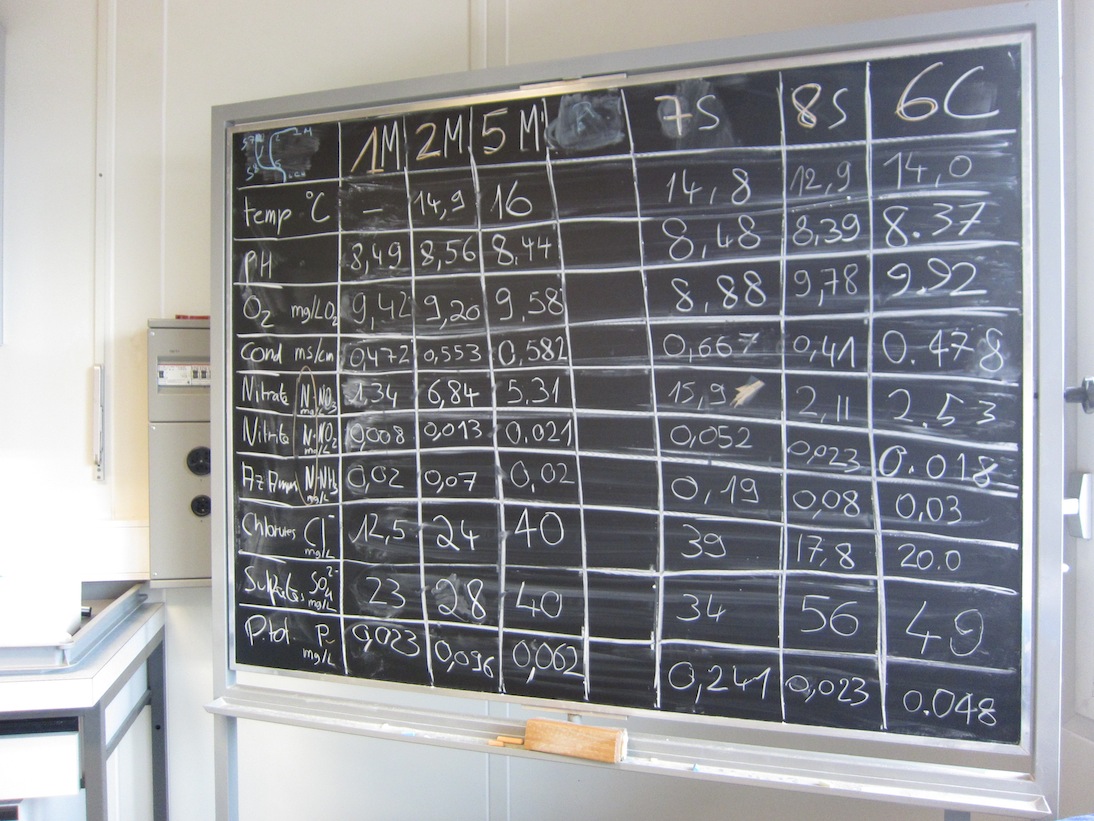 1M 2M 5M 7S 8S 6C
temp °C — 14,9 16 14,8 12,9 14,0
PH 8,49 8,56 8,44 8,48 8,39 8.37
O₂ mg/LO₂ 9,42 9,20 9,58 8,88 9,78 9.92
Cond ms/cm 0,472 0,553 0,582 0,667 0,41 0.478
Nitrate N-NO₃ mg/L 1,34 6,84 5,31 15,9 2,11 2.53
Nitrite N-NO₂ mg/L 0,008 0,013 0,021 0,052 0,023 0.018
Az Amm N-NH₃ mg/L 0,02 0,07 0,02 0,19 0,08 0,03
Chlorures Cl⁻ mg/L 12,5 24 40 39 17,8 20.0
Sulfates SO₄²⁻ mg/L 23 28 40 34 56 49
Ptot. P mg/L 0,023 0,096 0,062 0,241 0,023 0.048